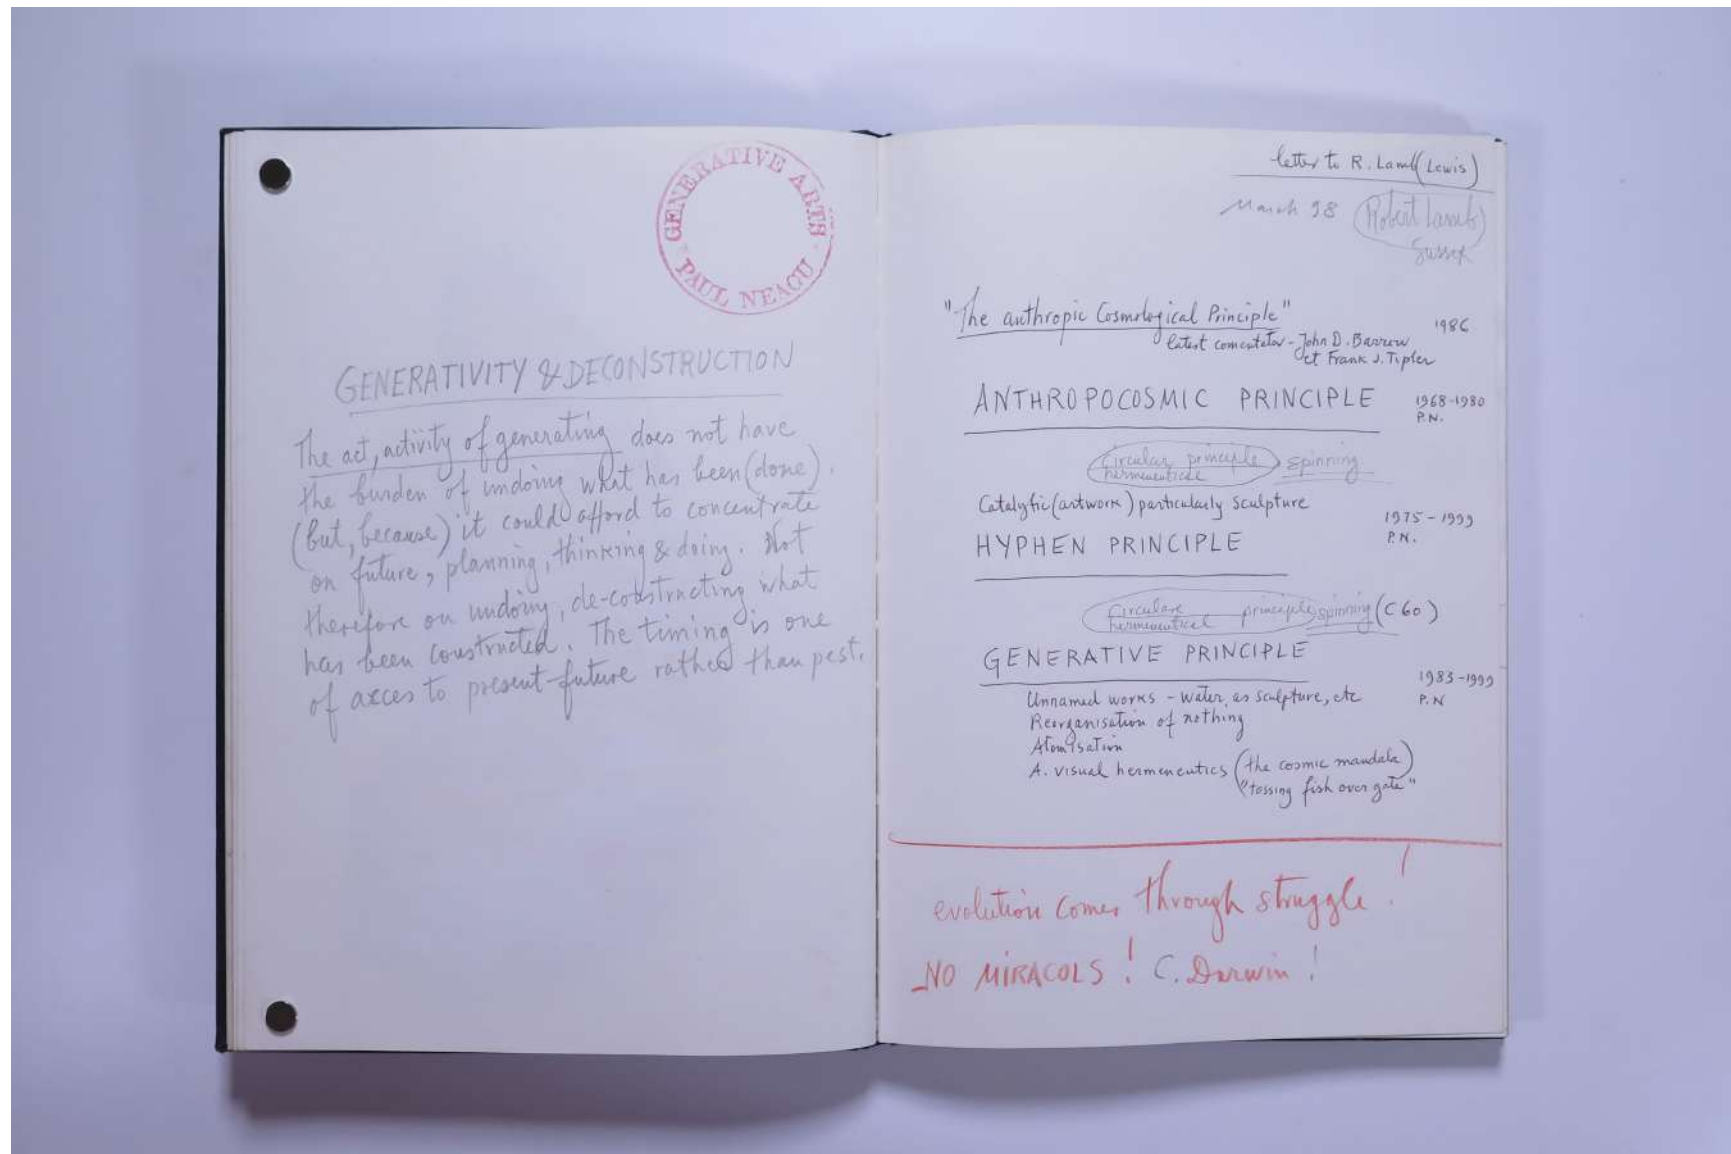 GENERATIVE ARTS
PAUL NEAGU
GENERATIVITY & DECONSTRUCTION
The act, activity of generating does not have
the burden of undoing what has been (done).
(but, because) it could afford to concentrate
on future, planning, thinking & doing. Not
therefore on undoing, de-constructing what
has been constructed. The timing is one
of acces to present-future rather than past.
letter to R. Lamb (Lewis)
March 98 (Robert Lamb)
Sussex
"The anthropic Cosmological Principle" 1986
latest comentator - John D. Barrow
et Frank J. Tipler
ANTHROPOCOSMIC PRINCIPLE 1968-1980
P.N.
Circular principle spinning
hermeneutical
Catalytic (artwork) particularly sculpture
HYPHEN PRINCIPLE 1975-1999
P.N.
Circulare principle spinning (C60)
hermeneutical
GENERATIVE PRINCIPLE
1983-1999
Unnamed works - water, as sculpture, etc P.N
Reorganisation of nothing
Atomisation
A. visual hermeneutics (the cosmic mandala)
"tossing fish over gate"
evolution comes through struggle!
NO MIRACOLS! C. Darwin!